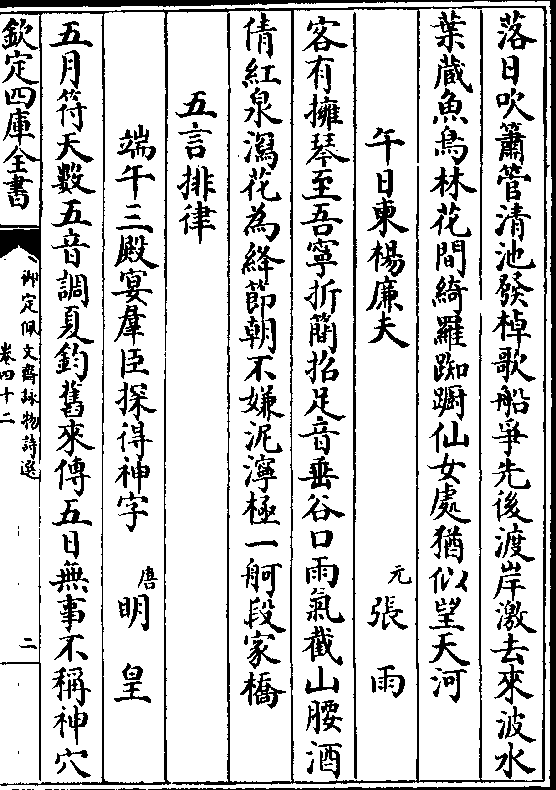 落日吹簫管清池發棹歌船爭先後渡岸激去來波水
葉蔵魚鳥林花間綺羅踟蹰仙女處猶似望天河
午日柬楊廉夫 元 張 雨
客有擁琴至吾寧折簡招足音垂谷口雨氣截山腰酒
倩紅泉瀉花為絳節朝不嫌泥濘極一舸段家橋
五言排律
端午三殿宴羣臣探得神字 唐 明 皇
五月符天數五音調夏鈞舊來傳五日無事不稱神穴
欽定四庫全書
御定佩文齋詠物詩選
卷四十二
二